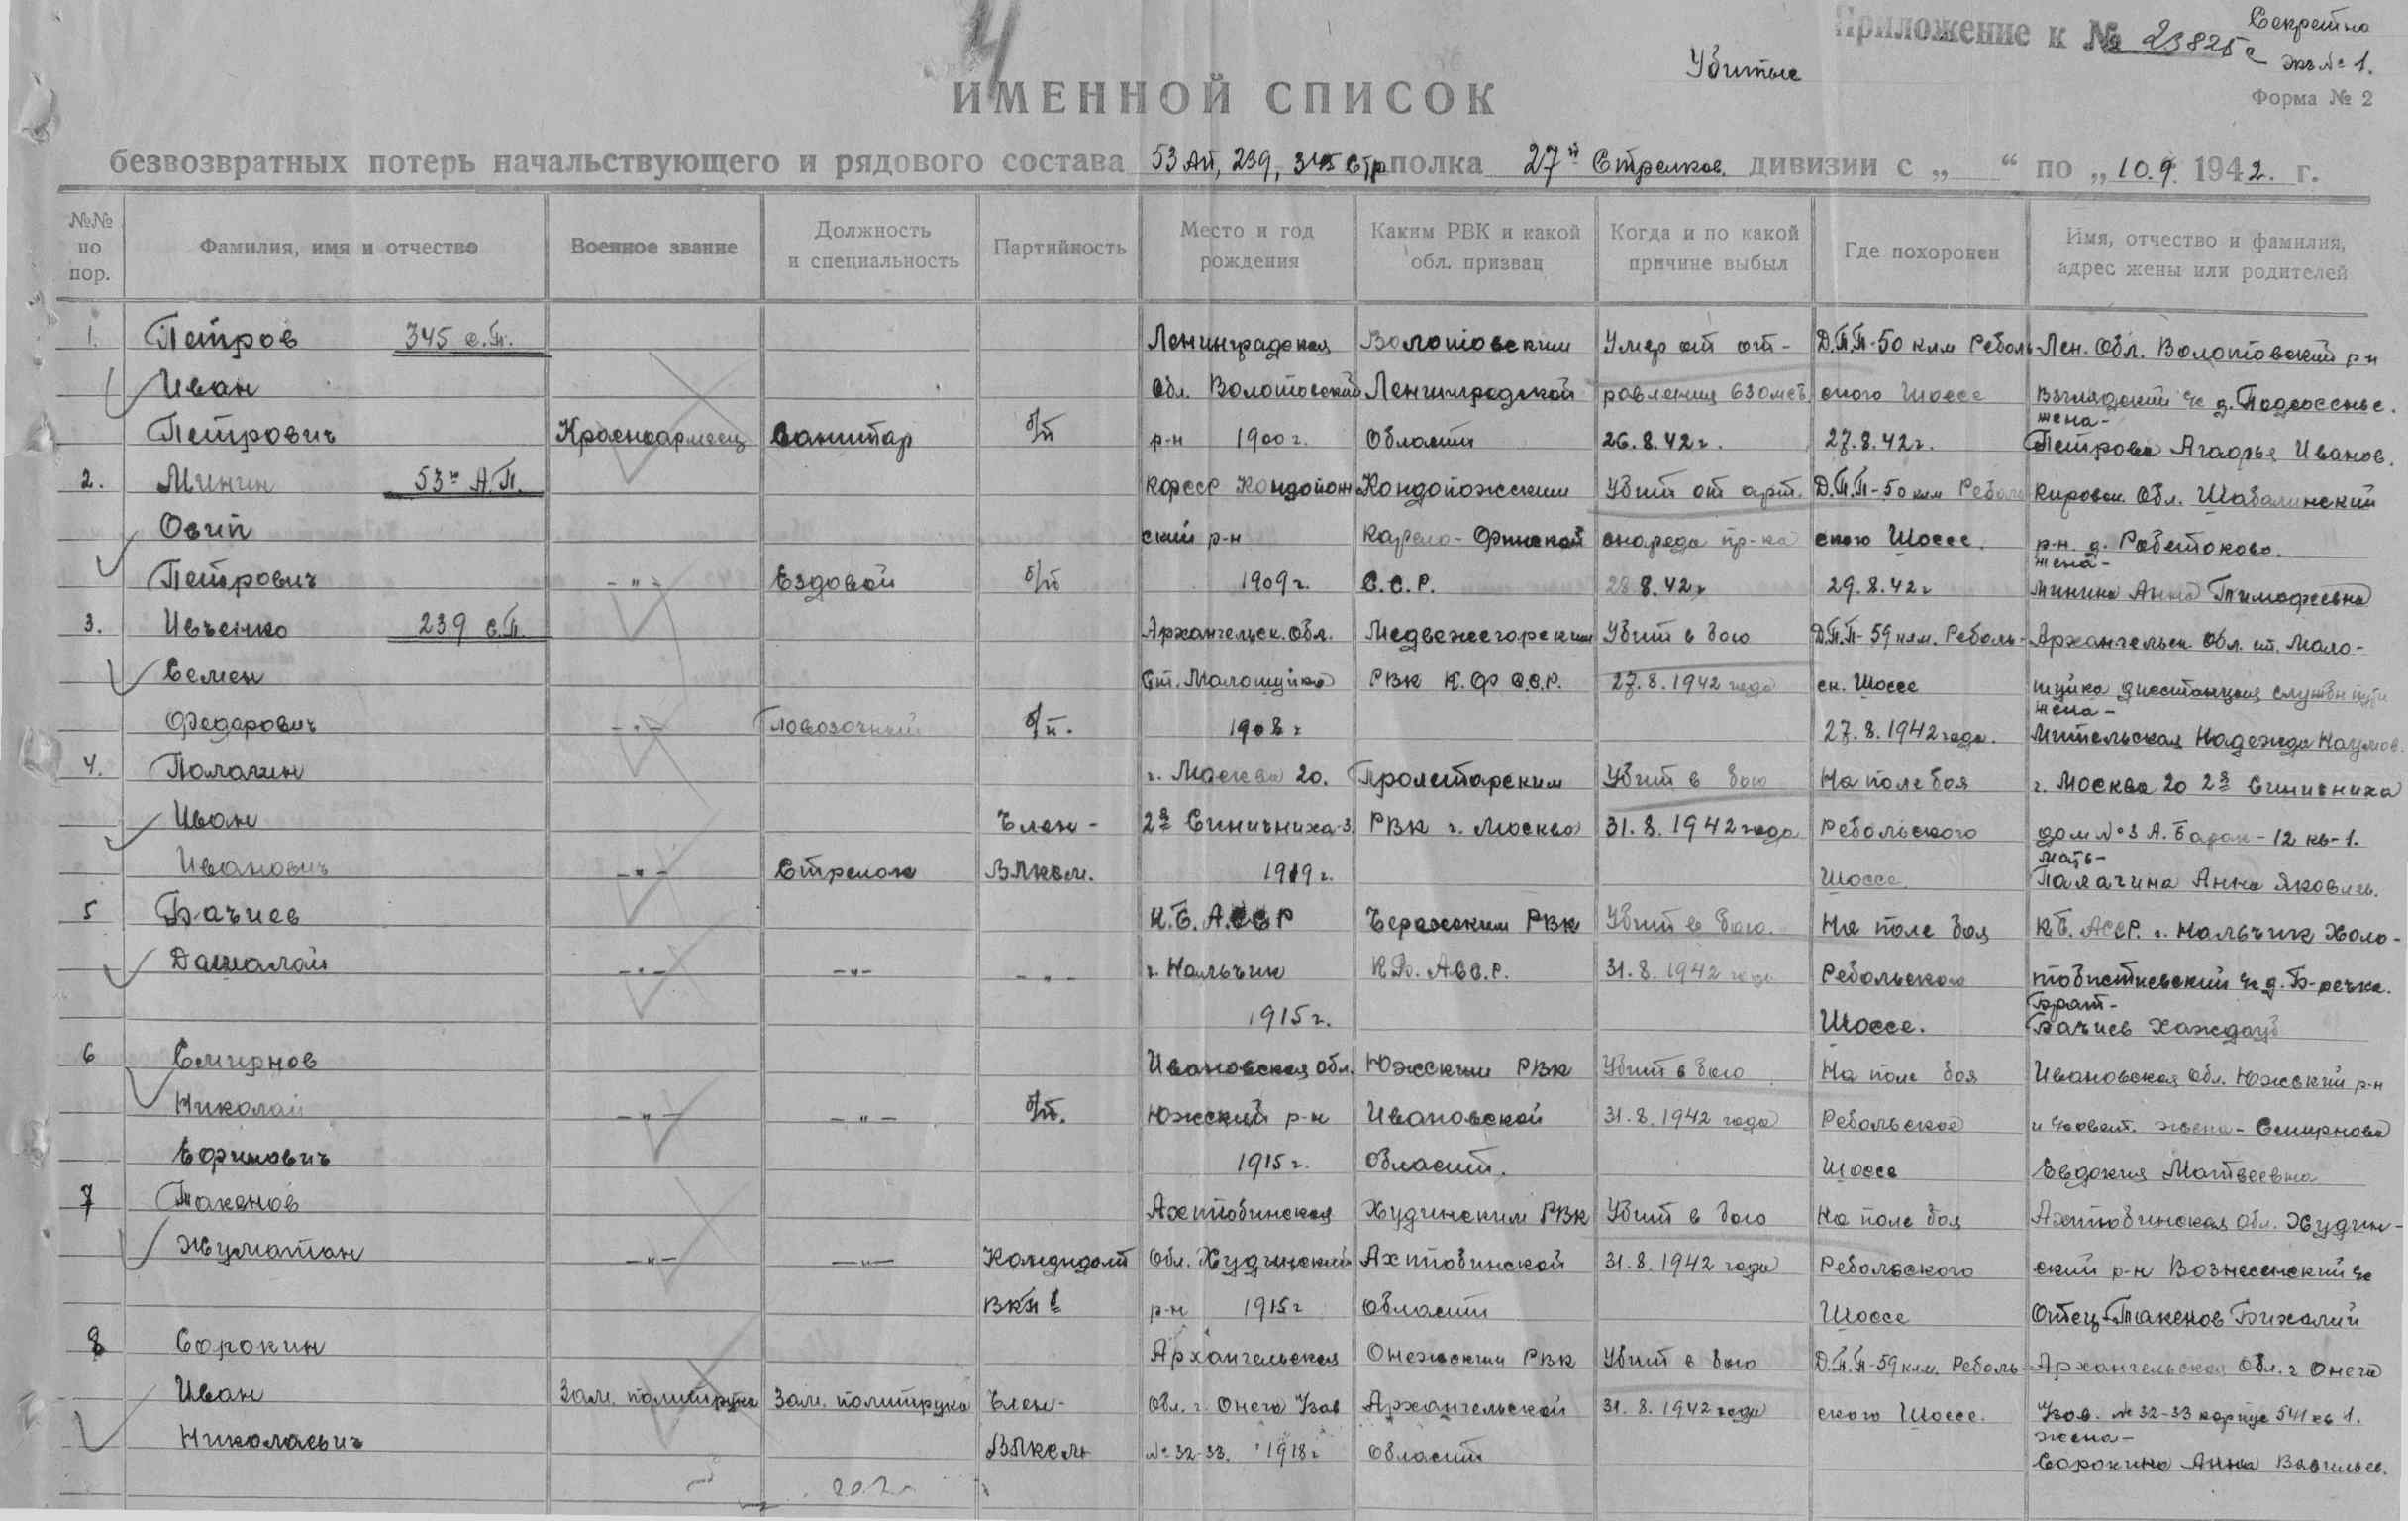 Приложение к № 23825с
Секретно
экз № 1.
Форма № 2
Убитые
4
ИМЕННОЙ СПИСОК
безвозвратных потерь начальствующего и рядового состава 53 АП, 239, 345 Стр полка 27й Стрелков. дивизии с „ “ по „10.9. 1942. г.
№№ по пор.
Фамилия, имя и отчество
Военное звание
Должность и специальность
Партийность
Место и год рождения
Каким РВК и какой обл. призван
Когда и по какой причине выбыл
Где похоронен
Имя, отчество и фамилия, адрес жены или родителей
1. Петров 345 с.п. Ленинградская Волотовским Умер от от- Д.П.П-50 клм Реболь- Лен. Обл. Волотовский р-н
Иван Обл. Волотовский Ленинградской равления ского Шоссе Взглядский с/с д.
жена-
Петрович Красноармеец Санитар б/п р-н 1900 г. Области 26.8.42 г. 27.8.42 г. Петрова Иванов.
2. Минин 53й А.П. Кфсср Кондопож Кондопожским Убит от арт. Д.П.П-50 клм Реболь Кировск. Обл. Шабалинский
Осип ский р-н Карело-Финской снаряда пр-ка ского Шоссе. р-н. д.
жена-
Петрович -"- Ездовой б/п 1909 г. С.С.Р. 28.8.42 г 29.8.42 г Минина Анна Тимофеевна
3. Ивченко 239 с.п. Архангельск. Обл. Медвежегорским Убит в бою Д.П.П-59 клм. Реболь- Архангельск. Обл. ст. Мало-
Семен Ст. Малошуйка РВК К.Ф С.С.Р. 27.8.1942 года ск. Шоссе шуйка дистанция службы пути
жена-
Федарович -"- Повозочный б/п. 1908 г 27.8.1942 года. Мительская Надежда Наумов.
4. Палагин г. Москва 20. Пролетарским Убит в бою На поле боя г. Москва 20 2я Синичниха
Иван Член- 2я Синичниха-3. РВК г. Москва 31.8.1942 года Ребольского дом № 3 А. Барак-12 кв-1.
мать-
Иванович -"- Стрелок ВЛКСМ. 1919 г. Шоссе. Палагина Анна Яковлев.
5 Бачиев К.Б. АССР РВК Убит в бою. На поле боя К.Б. АССР. г. Нальчик Холо-
Дашалай -"- -"- -"- г. Нальчик К.Б. АСС.Р. 31.8.1942 года Ребольского с/с д. Б-речка.
Брат-
1915 г. Шоссе. Бачиев
6 Смирнов Ивановская обл. Южским РВК Убит в бою На поле боя Ивановская обл. Южский р-н
Николай -"- -"- б/п. Южский р-н Ивановской 31.8.1942 года Ребольское жена-Смирнова
Ефимович 1915 г. Области. Шоссе Евдокия Матвеевна
7 Такенов Актюбинская РВК Убит в бою На поле боя Актюбинская обл.
Жуматан -"- -"- Кандидат Обл. 31.8.1942 года Ребольского ский р-н Вознесенский с/с
ВКП б р-н 1915 г Области Шоссе Отец-Такенов Бихалий
8 Сорокин Архангельская Онежским РВК Убит в бою Д.П.П-59 клм. Реболь- Архангельская Обл. г Онега
Иван Зам. политрука Зам. политрука Член- Обл. г. Онега Узав Архангельской 31.8.1942 года ского Шоссе. Узав. № 32-33 корпус 541 кв 1.
жена-
Николаевич ВЛКСМ № 32-33. 1918 г Области Сорокина Анна Васильев.